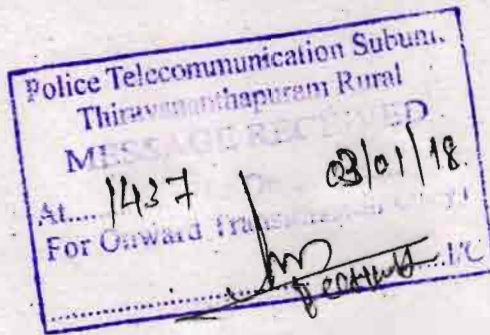 Police Telecommunication Subuni.
Thiruvananthapuram Rural
MESSAGE RECEIVED
At..... 1437 03/01/18.
For Onward
I/C